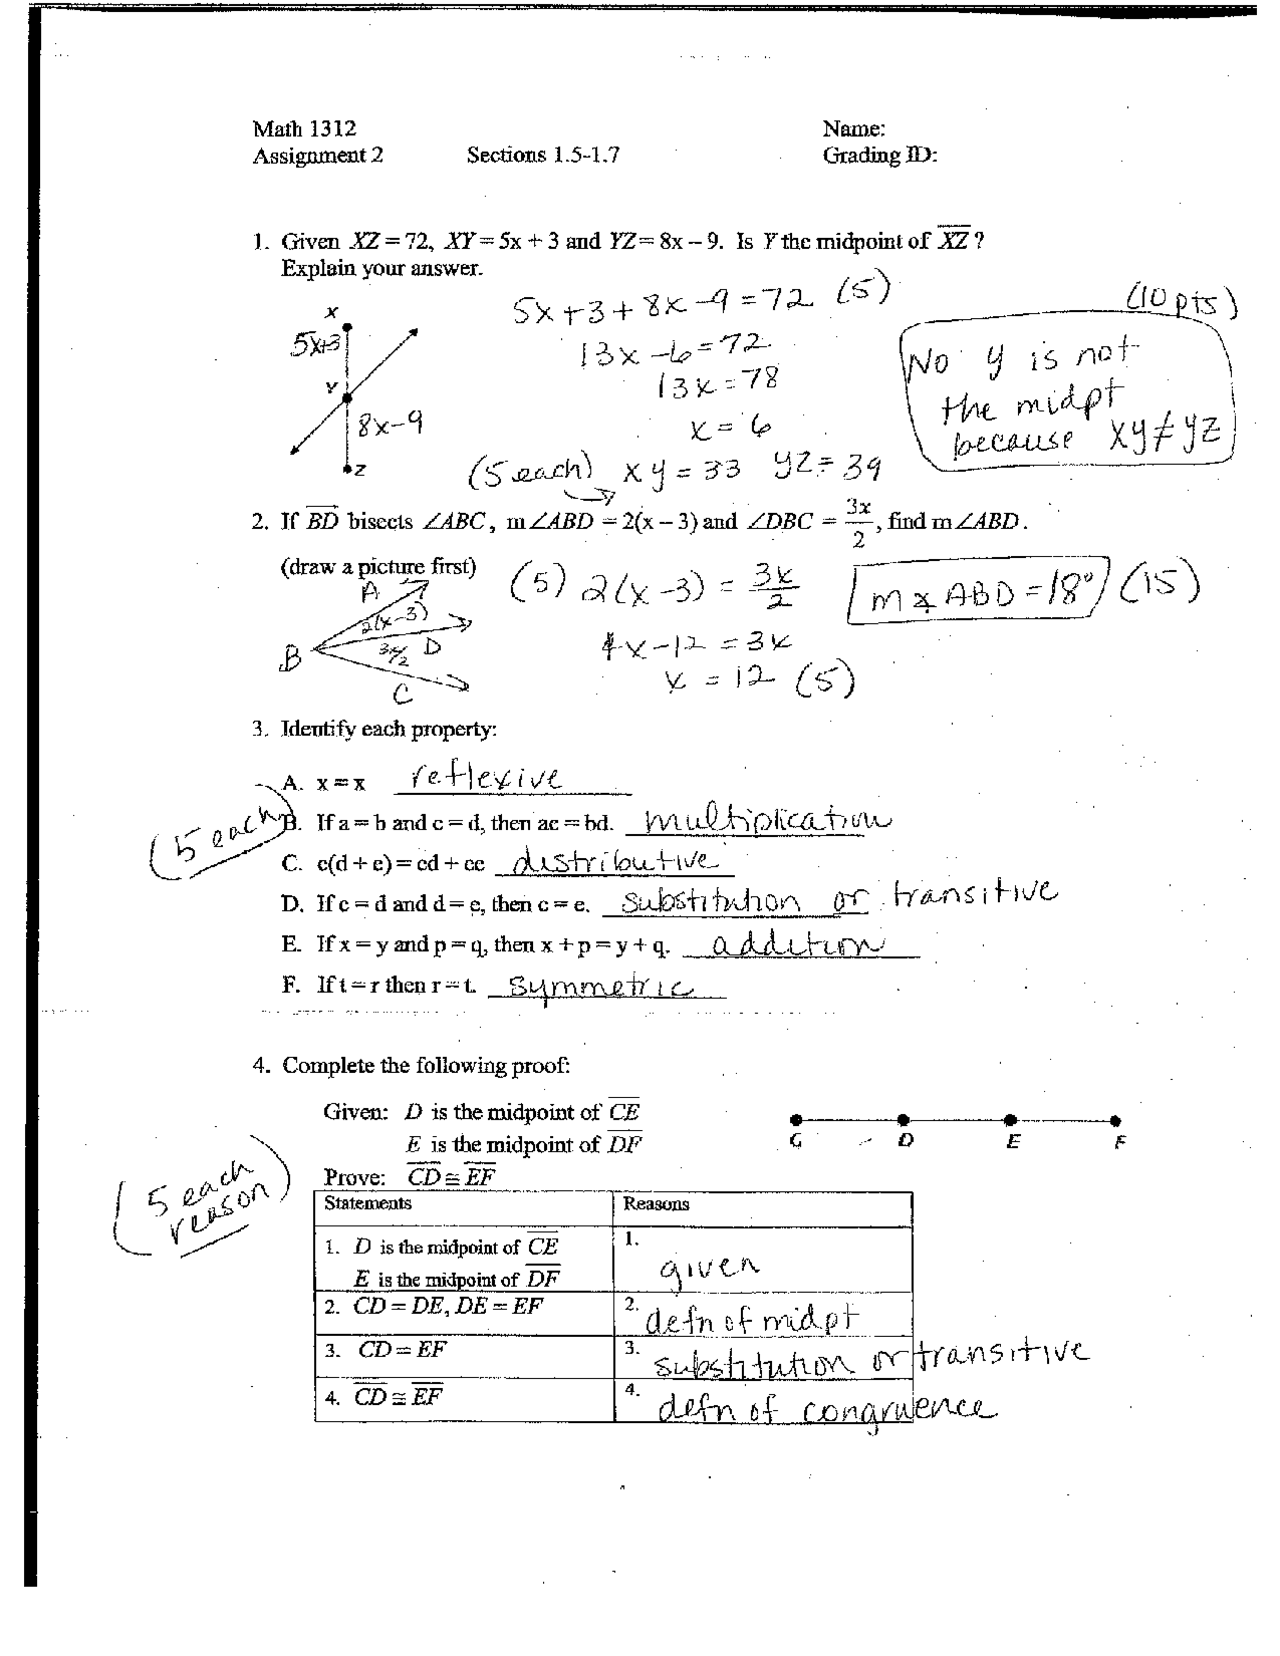 Math 1312 Name:
Assignment 2 Sections 1.5-1.7 Grading ID:
1. Given XZ = 72, XY = 5x + 3 and YZ = 8x – 9. Is Y the midpoint of X̅Z̅ ?
Explain your answer.
5x+3+8x-9=72 (5)
(10 pts)
X
5x+3
13x-6=72
13x=78
x=6
Y
8x-9
Z
No y is not
the midpt
because xy≠yz
(5 each) xy=33 yz=39
2. If B⃗D⃗ bisects ∠ABC, m∠ABD = 2(x – 3) and ∠DBC = 3x/2, find m∠ABD.
(draw a picture first)
A
2(x-3)
B
3x/2 D
C
(5) 2(x-3) = 3x/2
4x-12=3x
x=12 (5)
m∡ABD=18° (15)
3. Identify each property:
(5 each)
A. x = x reflexive
B. If a = b and c = d, then ac = bd. multiplication
C. c(d + e) = cd + ce distributive
D. If c = d and d = e, then c = e. substitution or transitive
E. If x = y and p = q, then x + p = y + q. addition
F. If t = r then r = t. symmetric
4. Complete the following proof:
Given: D is the midpoint of C̅E̅
E is the midpoint of D̅F̅
C D E F
Prove: C̅D̅ ≅ E̅F̅
(5 each
reason)
Statements Reasons
1. D is the midpoint of C̅E̅ 1.
E is the midpoint of D̅F̅ given
2. CD = DE, DE = EF 2. defn of midpt
3. CD = EF 3. substitution or transitive
4. C̅D̅ ≅ E̅F̅ 4. defn of congruence